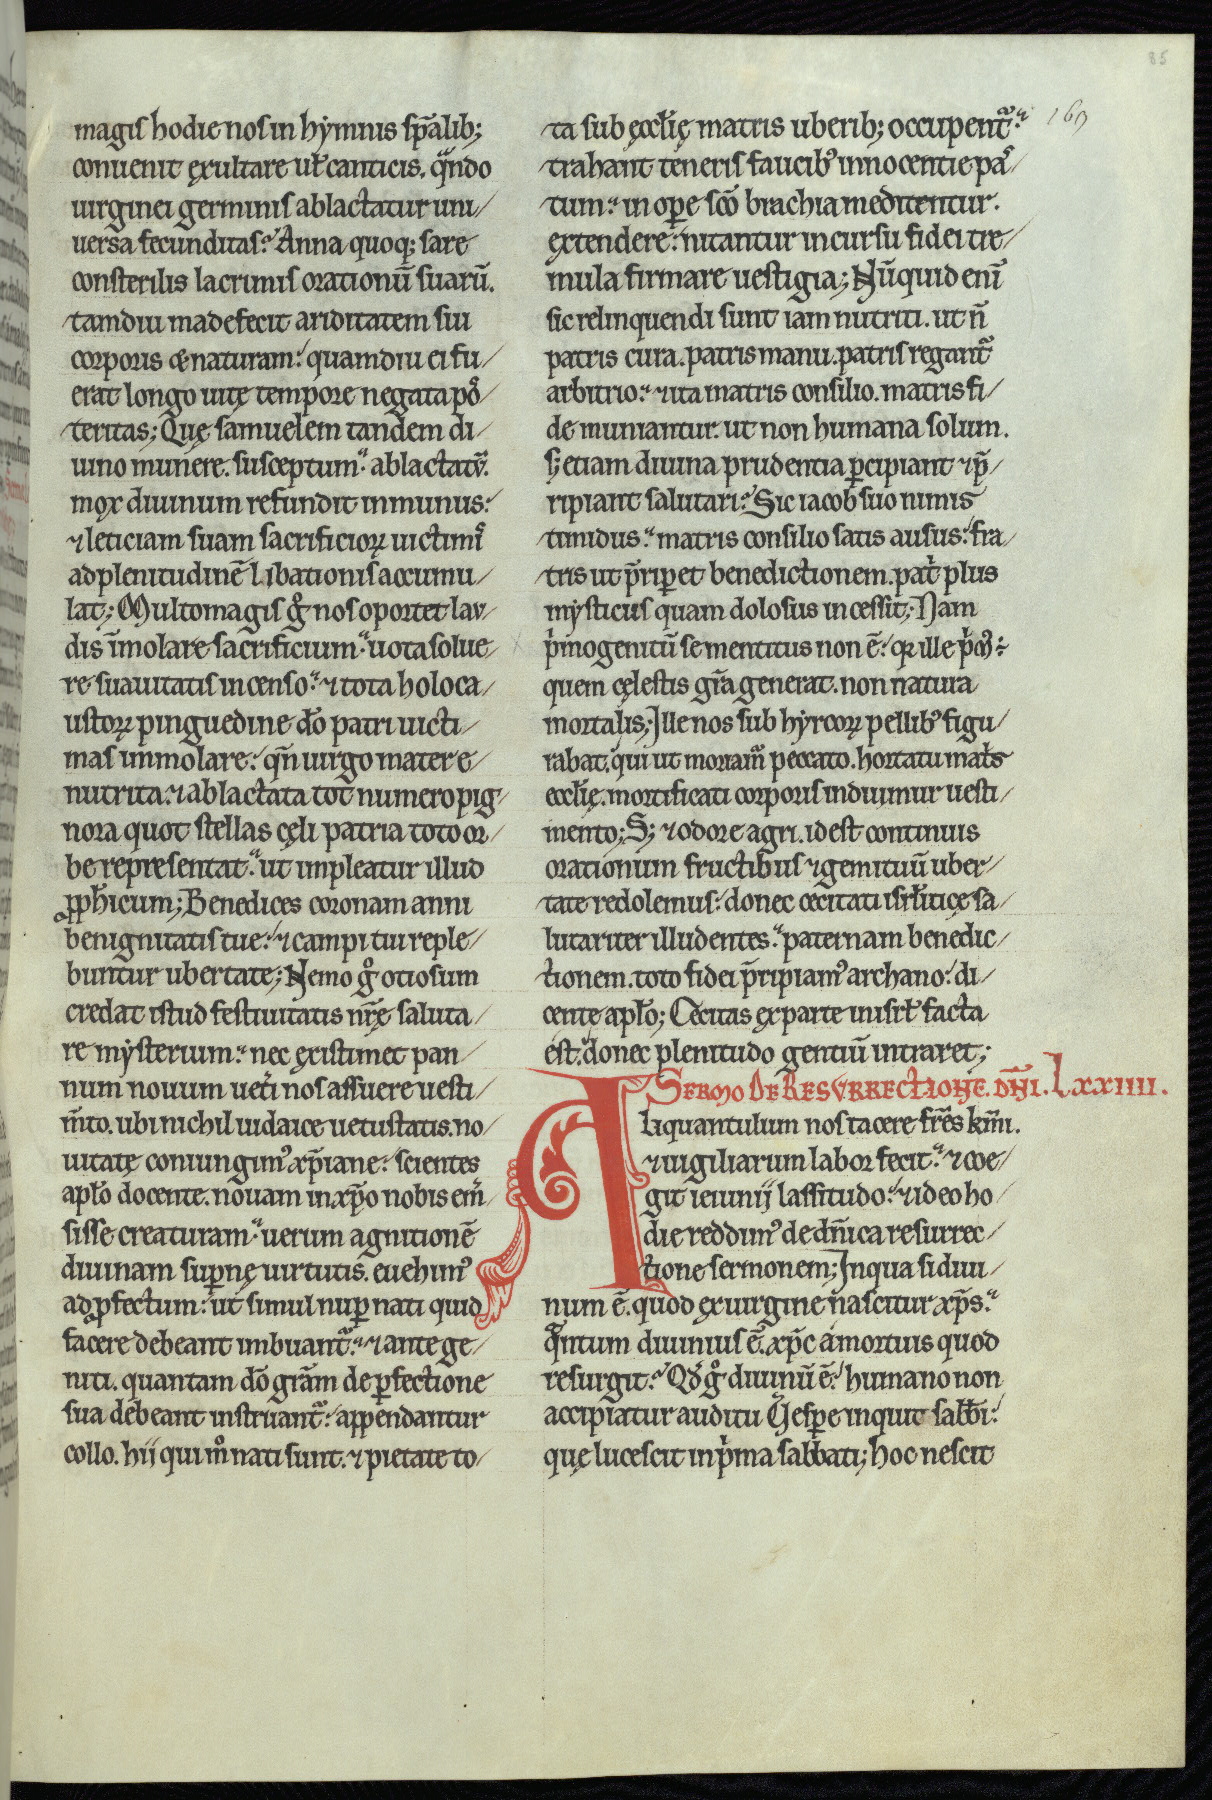 85
169
magis hodie nos in hẏmnis sp̅alib;
conuenit exultare uƚ canticis. qᷓndo
uirginei germinis ablactatur uni/
uersa fecunditas. Anna quoq; sare
consterilis lacrimis orationū suarū.
tamdiu madefecit ariditatem sui
corporis & naturam. quamdiu ei fu/
erat longo uitę tempore negata pos/
teritas; Quę samuelem tandem di/
uino munere. susceptum. ablactatū.
mox diuinum refundit in munus.
⁊ leticiam suam sacrificioꝝ uictimis
ad plenitudinē libationis accumu/
lat; Multomagis gͦ nos oportet lau/
dis īmolare sacrificium. uota solue/
re suauitatis incenso. ⁊ tota holoca/
ustoꝝ pinguedine dō patri uicti/
mas immolare. qn̅ uirgo mater e/
nutrita. ⁊ ablactata tot numero pig/
nora quot stellas cęli patria toto or/
be representat. ut impleatur illud
ꝓph̅icum; Benedices coronam anni
benignitatis tue. ⁊ campi tui reple/
buntur ubertate; Nemo gͦ otiosum
credat istud festiuitatis nr̅ę saluta/
re mẏsterium. nec existimet pan/
num nouum uet̅i nos assuere uesti/
m̅to. ubi nichil iudaice uetustatis. no/
uitatę coniungimꝰ xp̅iane. scientes
apƚo docente. nouam in xp̅o nobis em̅/
sisse creaturam. uerum agnitionē
diuinam suꝑnę uirtutis. euehimꝰ
ad ꝓfectum. ut simul nuꝑ nati quid
facere debeant imbuant᷑. ⁊ ante ge/
niti. quantam dō gr̅am de ꝑfectione
sua debeant instruant᷑. appendantur
collo. hij qui mͦ nati sunt. ⁊ pietate to/
ta sub ęccƚię matris uberib; occupent᷑.
trahant teneris faucibꝰ innocentie pas/
tum. in oꝑe sc̅o brachia meditentur.
extendere. nitantur in cursu fidei tre/
mula firmare uestigia; Nūquid eni̅
sic relinquendi sunt iam nutriti. ut n̅
patris cura. patris manu. patris regant᷑
arbitrio. ⁊ ita matris consilio. matris fi/
de muniantur. ut non humana solum.
s; etiam diuina prudentia ꝑcipiant ⁊ p̅/
ripiant salutari. Sic iacob suo nimis
timidus. matris consilio satis ausus. fra/
tris ut p̅riꝑet benedictionem. pat̅ plus
mẏsticus quam dolosus incessit; Nam
pͥmogenitū se mentitus non ē. qꝛ ille pͥmꝰ.
quem cęlestis gr̅a generat. non natura
mortalis; Ille nos sub hyrcoꝝ pellibꝰ figu/
rabat. qui ut moriam᷑ peccato. hortatu mat̅s
eccƚię. mortificati corporis induimur uesti/
mento; S; ⁊ odore agri. id est continuis
orationum fructibus ⁊ gemituū uber/
tate redolemus. donec cecitati isrƚiticę sa/
lutariter illudentes. paternam benedic/
tionem. toto fidei p̅ripiamꝰ archano. di/
cente apƚo; Cecitas ex parte in isrƚ facta
est. donec plenitudo gentiū intraret;
Sermo de Resurrectione. dn̅i. Lxxiiii.
Aliquantulum nos tacere fr̅es km̅i.
⁊ uigiliarum labor fecit. ⁊ coe/
git ieiunij lassitudo. ⁊ ideo ho/
die reddimꝰ de dn̅ica resurrec/
tione sermonem; Inqua si diui/
num ē. quod ex uirgine nascitur xp̅s.
qᷓntum diuinius ē. xp̅c a mortuis quod
resurgit. Qd̅ gͦ diuinū ē. humano non
accipiatur auditu Vesꝑe inquit sabb̅i.
quę lucescit in pͥma sabbati; hoc nescit